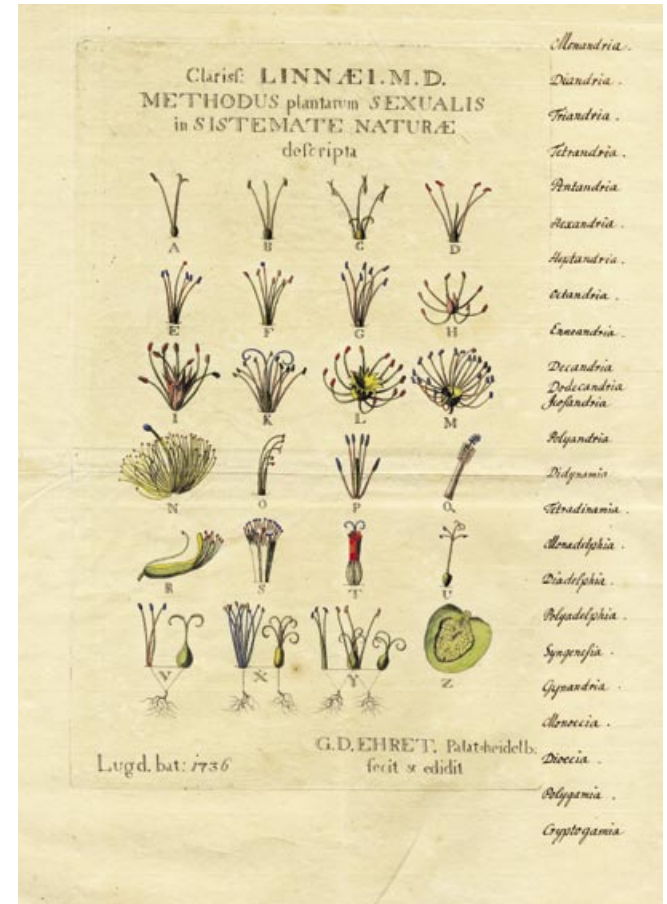 Clariſſ: LINNÆI. M. D.
METHODUS plantarum SEXUALIS
in SISTEMATE NATURÆ
deſcripta
A B C D
E F G H
I K L M
N O P Q
R S T U
V X Y Z
Lugd. bat: 1736
G.D. EHRET. Palat-heidelb:
fecit & edidit
Monandria.
Diandria.
Triandria.
Tetrandria.
Pentandria
Hexandria.
Heptandria.
Octandria.
Enneandria.
Decandria
Dodecandria
Icosandria
Polyandria
Didynamia
Tetradinamia
Monadelphia.
Diadelphia.
Polyadelphia.
Syngenesia.
Gynandria.
Monoecia.
Dioecia.
Polygamia.
Cryptogamia